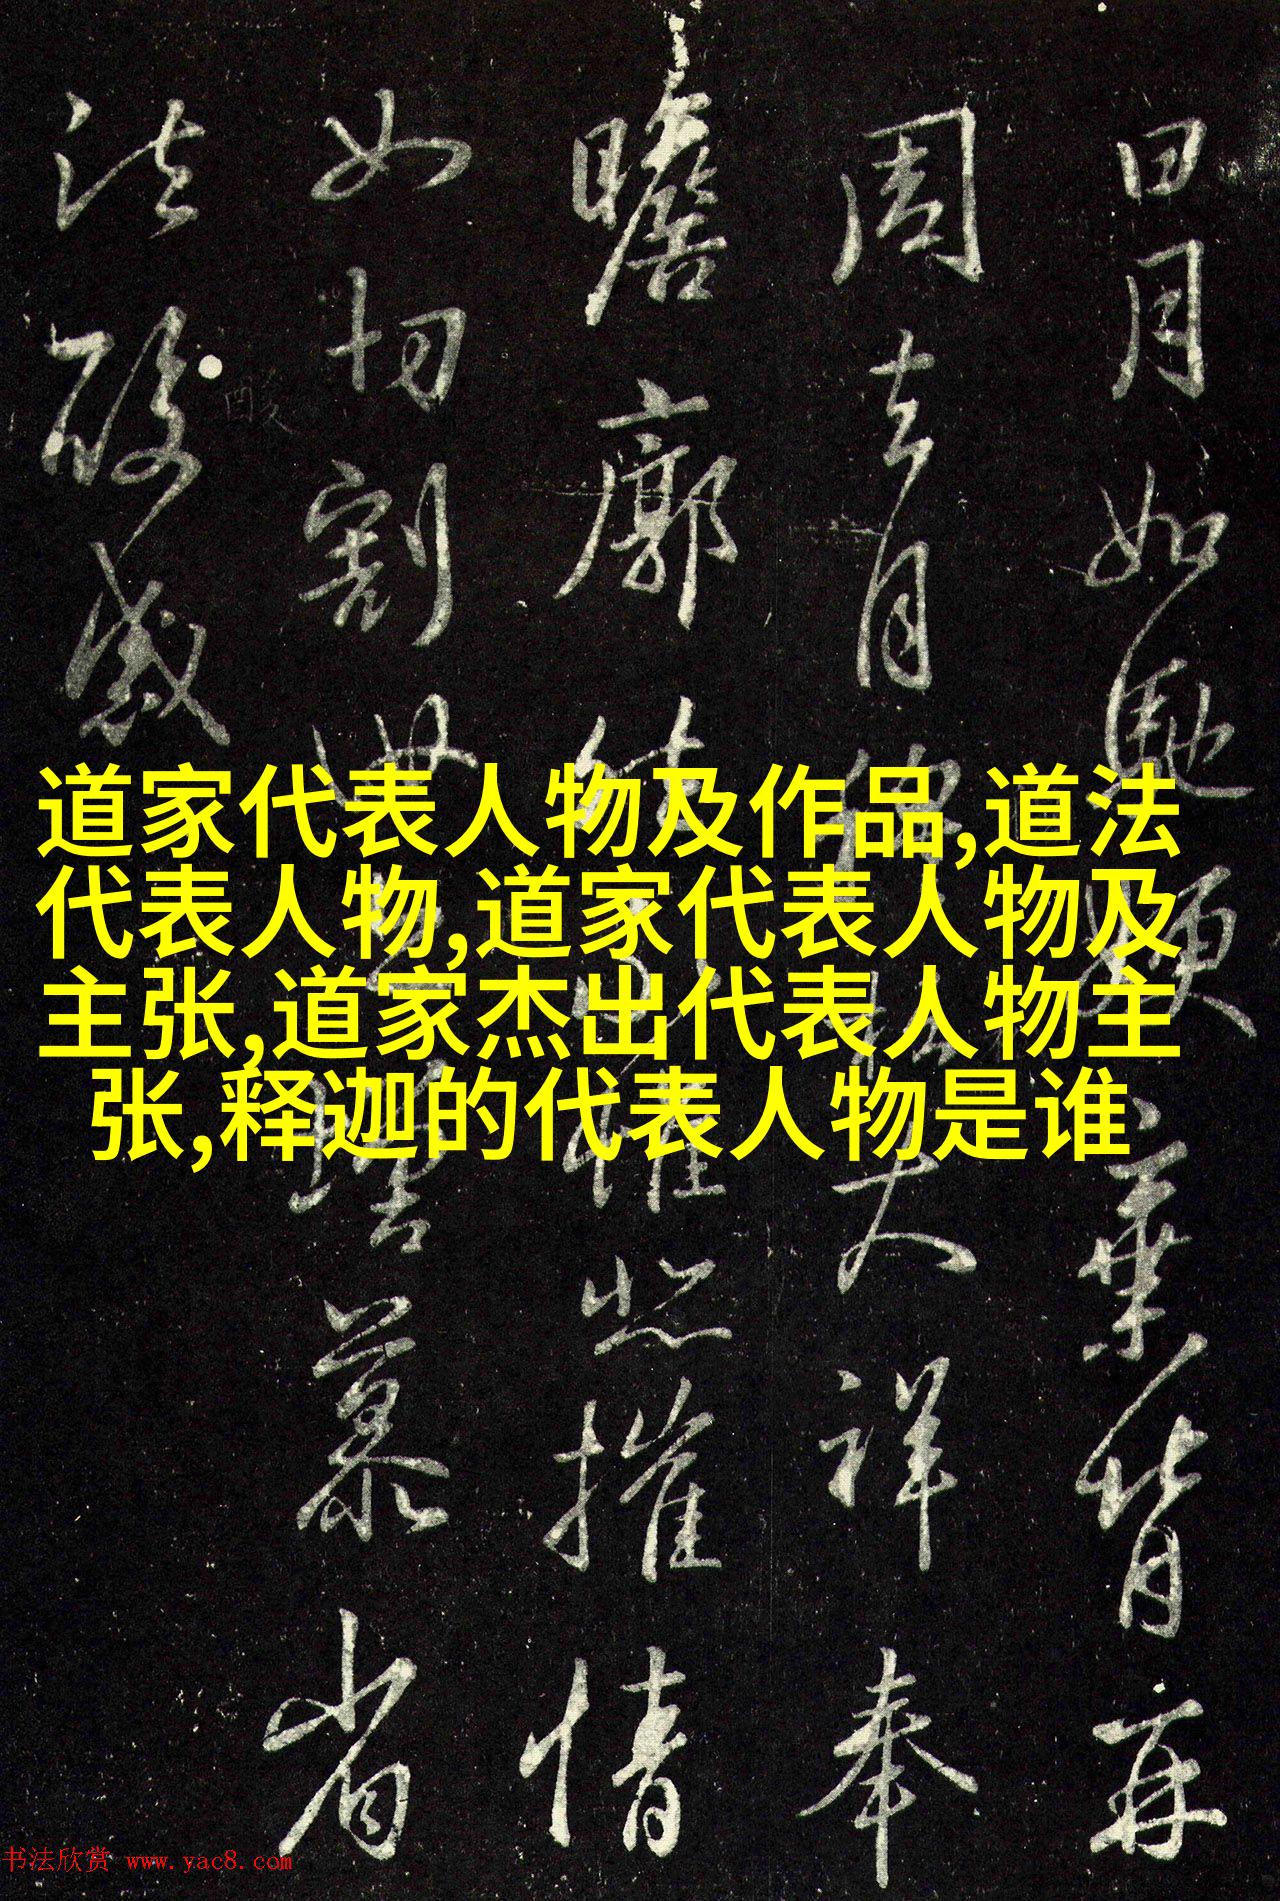 日月如馳嫂棄背再
周去月穆松大祥奉
瞻廓然永惟悲摧情
如切割
增慕省
酸感
酸
道家代表人物及作品,道法
代表人物,道家代表人物及
主张,道家杰出代表人物主
张,释迦的代表人物是谁
书法欣赏 www.yac8.com